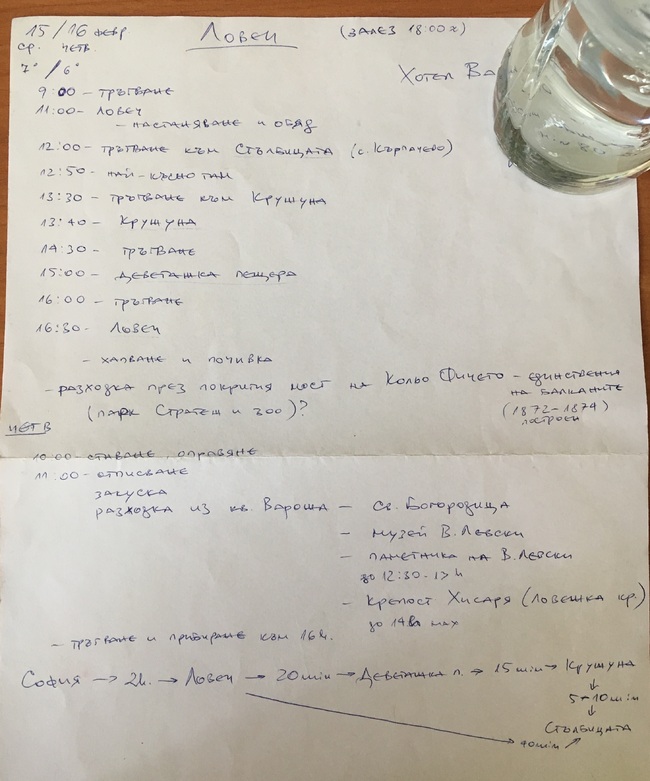 15/16 февр
Ловеч
(залез 18:00 ч)
ср. четв.
7° / 6°
Хотел Ва
9:00 - тръгване
11:00 - Ловеч
- настаняване и обяд
12:00 - тръгване към Стълбицата (с. Кърпачево)
12:50 - най-късно там
13:30 - тръгване към Крушуна
13:40 - Крушуна
14:30 - тръгване
15:00 - Деветашка пещера
16:00 - тръгване
16:30 - Ловеч
- хапване и почивка
- разходка през покрития мост на Кольо Фичето - единствения
на Балканите
(парк Стратеш и зоо)?
(1872-1874)
построен
четв
10:00 - ставане, оправяне
11:00 - отписване
закуска
разходка из кв. Вароша - Св. Богородица
- музей В. Левски
- паметника на В. Левски
до 12:30-13 ч
- Крепост Хисаря (Ловешка кр.)
до 14ч мах
- тръгване и прибиране към 16ч.
София → 2h. → Ловеч → 20min → Деветашка п. → 15min → Крушуна
↓
5-10min
↓
Стълбицата
40min